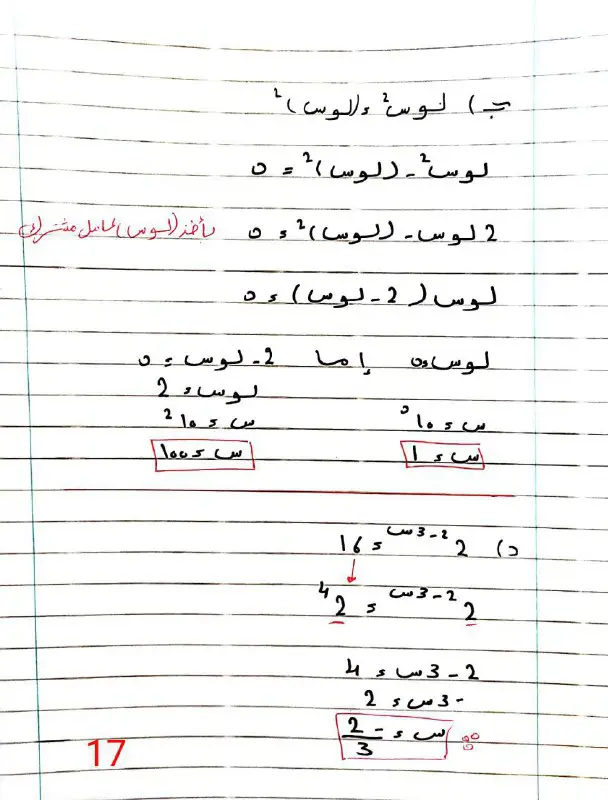 ب) لوس² = (لوس)²
لوس² - (لوس)² = 0
2 لوس - (لوس)² = 0 نأخذ (لوس) عامل مشترك
لوس (2 - لوس) = 0
لوس = 0 إما 2 - لوس = 0
لوس = 2
س = 10⁰ س = 10²
س = 1 س = 100
د) 2²⁻³س = 16
2²⁻³س = 2⁴
2 - 3س = 4
-3س = 2
∴ س = -2/3
17